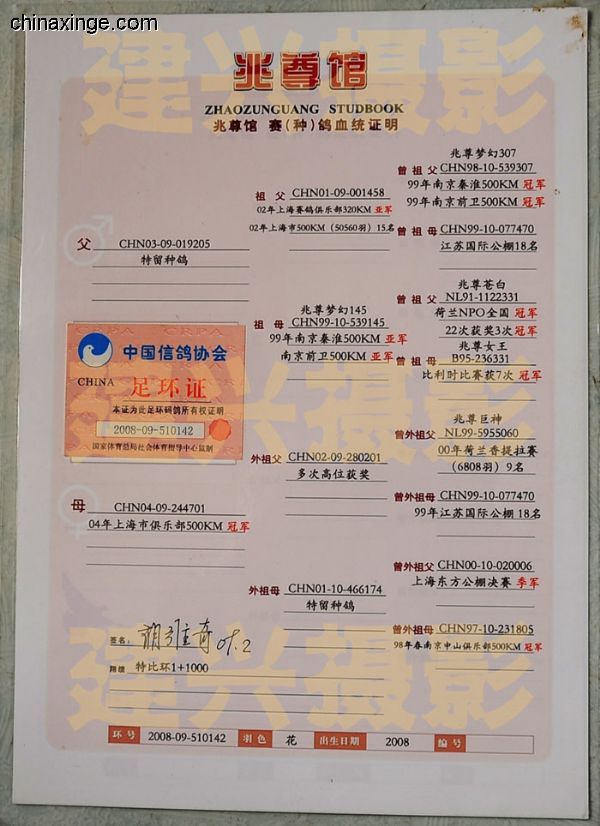 chinaxinge.com
建兴摄影
兆尊馆
ZHAOZUNGUANG STUDBOOK
兆尊馆 赛(种)鸽血统证明
父 CHN03-09-019205
特留种鸽
祖父 CHN01-09-001458
02年上海赛鸽俱乐部320KM 亚军
02年上海市500KM (50560羽) 15名
兆尊梦幻307
曾祖父 CHN98-10-539307
99年南京秦淮500KM 冠军
99年南京前卫500KM 冠军
曾祖母 CHN99-10-077470
江苏国际公棚18名
兆尊梦幻145
祖母 CHN99-10-539145
99年南京秦淮500KM 亚军
南京前卫500KM 亚军
兆尊苍白
曾祖父 NL91-1122331
荷兰NPO全国 冠军
22次获奖3次 冠军
兆尊女王
曾祖母 B95-236331
比利时比赛获7次 冠军
CRPA CRPA
中国信鸽协会
CHINA 足环证
本证为此足环码鸽所有权证明
2008-09-510142
国家体育总局社会体育指导中心监制
建兴摄影
母 CHN04-09-244701
04年上海市俱乐部500KM 冠军
外祖父 CHN02-09-280201
多次高位获奖
兆尊巨神
曾外祖父 NL99-5955060
00年荷兰香提拉赛
(6808羽) 9名
曾外祖母 CHN99-10-077470
99年江苏国际公棚 18名
外祖母 CHN01-10-466174
特留种鸽
曾外祖父 CHN00-10-020006
上海东方公棚决赛 季军
曾外祖母 CHN97-10-231805
98年春南京中山俱乐部500KM 冠军
建兴摄影
签名: 09.2
翔绩 特比环1+1000
环号 2008-09-510142 羽色 花 出生日期 2008 编号